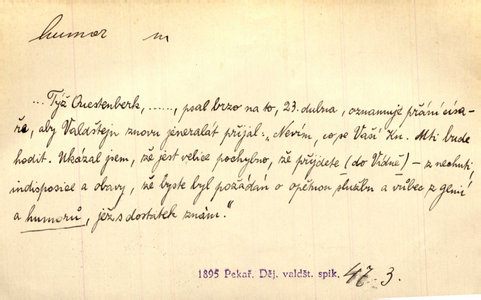 humor m
... Týž Questenberk, ......, psal brzo na to, 23. dubna, oznamuje přání císa-
ře, aby Valdštejn znovu jeneralát přijal: „Nevím, co se Vaší Kn. Mti bude
hodit. Ukázal jsem, že jest velice pochybno, že přijdete (do Vídně) – z nechuti,
indisposice a obavy, že byste byl požádán o opětnou službu a vůbec z genií
a humorů, jež s dostatek znám."
1895 Pekař, Děj. valdšt. spik. 47. 3.